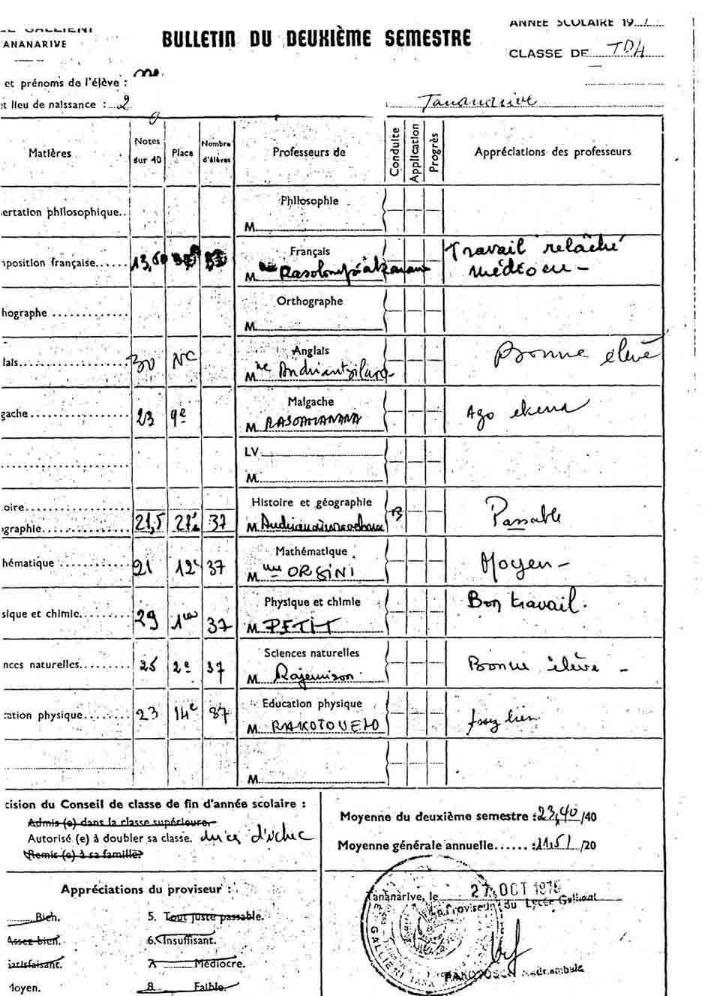 ANNÉE SCOLAIRE 19
ANANARIVE
BULLETIN DU DEUXIÈME SEMESTRE
CLASSE DE TDA
et prénoms de l'élève :
et lieu de naissance : 2 Tananarive
Matières Notes sur 40 Place Nombre d'élèves Professeurs de Conduite Application Progrès Appréciations des professeurs
ertation philosophique.. Philosophie
M.
position française...... 13,50 Français Travail relâché
M médiocre -
hographe ............. Orthographe
M.
lais 30 NC Anglais Bonne élève
M
gache 23 9e Malgache
M. Ago ekena
LV
M.
oire Histoire et géographie
graphie 21,5 37 M. B Passable
hématique 21 12e 37 Mathématique Moyen -
M ORSINI
sique et chimie 29 1ère 37 Physique et chimie Bon travail.
M. PETIT
nces naturelles 25 2e 37 Sciences naturelles Bonne élève -
M. Rajemison
cation physique 23 14e 37 Education physique Assez bien
M. RAKOTOVELO
M.
cision du Conseil de classe de fin d'année scolaire :
Admis (e) dans la classe supérieure.
Autorisé (e) à doubler sa classe. d'échec
Remis (e) à sa famille?
Moyenne du deuxième semestre : 23,40 /40
Moyenne générale annuelle...... : 11,51 /20
Appréciations du proviseur :
Bien. 5. Tout juste passable.
Assez bien. 6. Insuffisant.
Satisfaisant. 7. Médiocre.
Moyen. 8. Faible.
ananarive, le 27 OCT 1975
Proviseur du Lycée Gallieni
GALLIENI